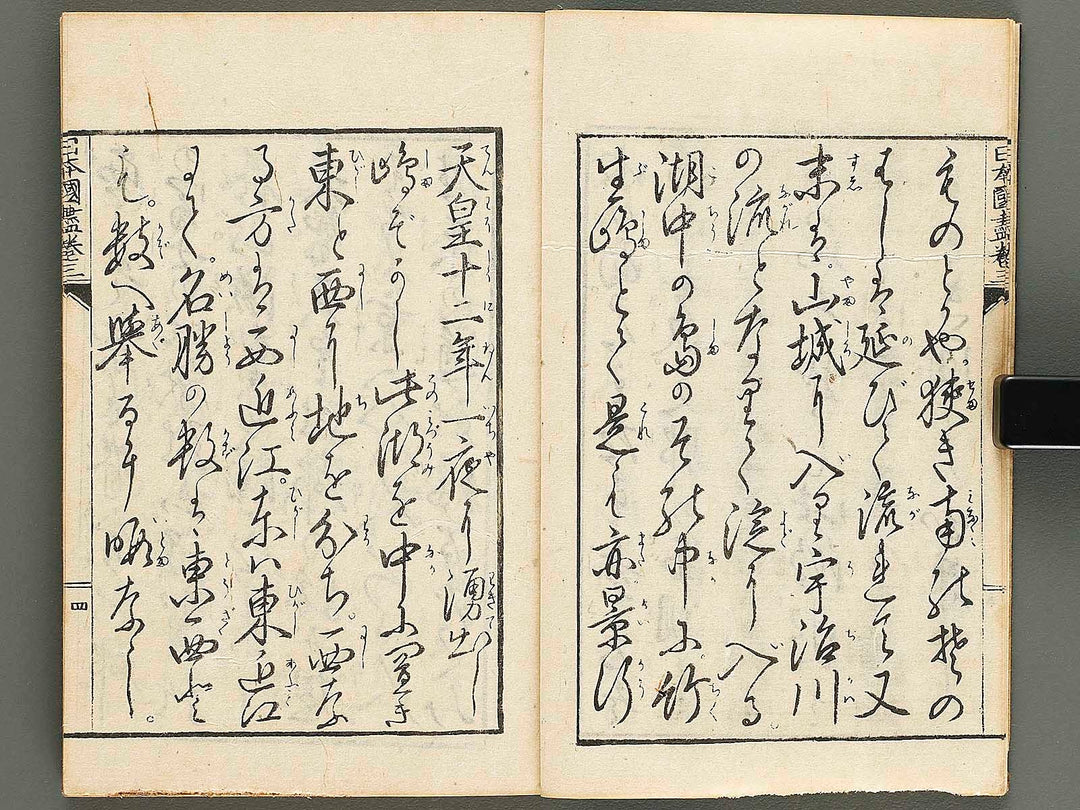 ものとかや。狭き南の地の
はしは延びて流れては又
末は山城に入り宇治川
の流となりて淀に入る
湖中の島の其中に竹
生嶋とて是も亦景行
天皇十二年一夜に湧出し
嶋ぞかし此湖を中に置き
東と西に地を分ち。西な
る方は西近江。東は東近江
にて。名勝の数は東西と
も。数へ挙るに暇なし。
日本國盡巻三
日本國盡巻三
四